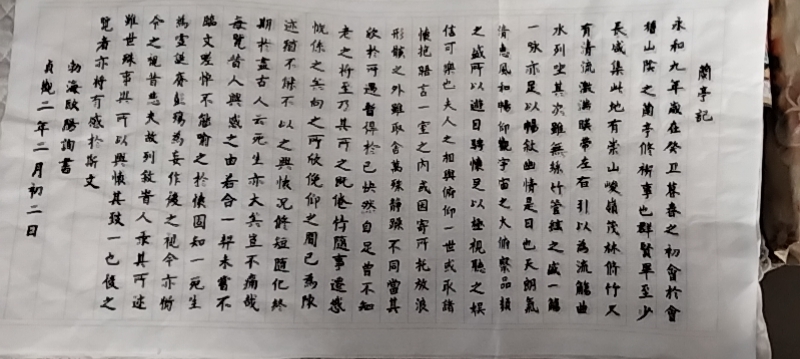 蘭亭記
永和九年歲在癸丑暮春之初會於會
稽山陰之蘭亭修禊事也群賢畢至少
長咸集此地有崇山峻嶺茂林脩竹又
有清流激湍暎帶左右引以為流觴曲
水列坐其次雖無絲竹管絃之盛一觴
一詠亦足以暢敘幽情是日也天朗氣
清惠風和暢仰觀宇宙之大俯察品類
之盛所以遊目騁懷足以極視聽之娛
信可樂也夫人之相與俯仰一世或取諸
懷抱晤言一室之內或因寄所託放浪
形骸之外雖取舍萬殊靜躁不同當其
欣於所遇暫得於己怏然自足曾不知
老之將至乃其所之既倦情隨事遷感
慨係之矣向之所欣俛仰之間已為陳
迹猶不能不以之興懷況脩短隨化終
期於盡古人云死生亦大矣豈不痛哉
每覽昔人興感之由若合一契未嘗不
臨文嗟悼不能喻之於懷固知一死生
為虛誕齊彭殤為妄作後之視今亦猶
今之視昔悲夫故列敘時人录其所述
雖世殊事異所以興懷其致一也後之
覽者亦將有感於斯文
勃海歐陽詢書
貞觀二年二月初二日